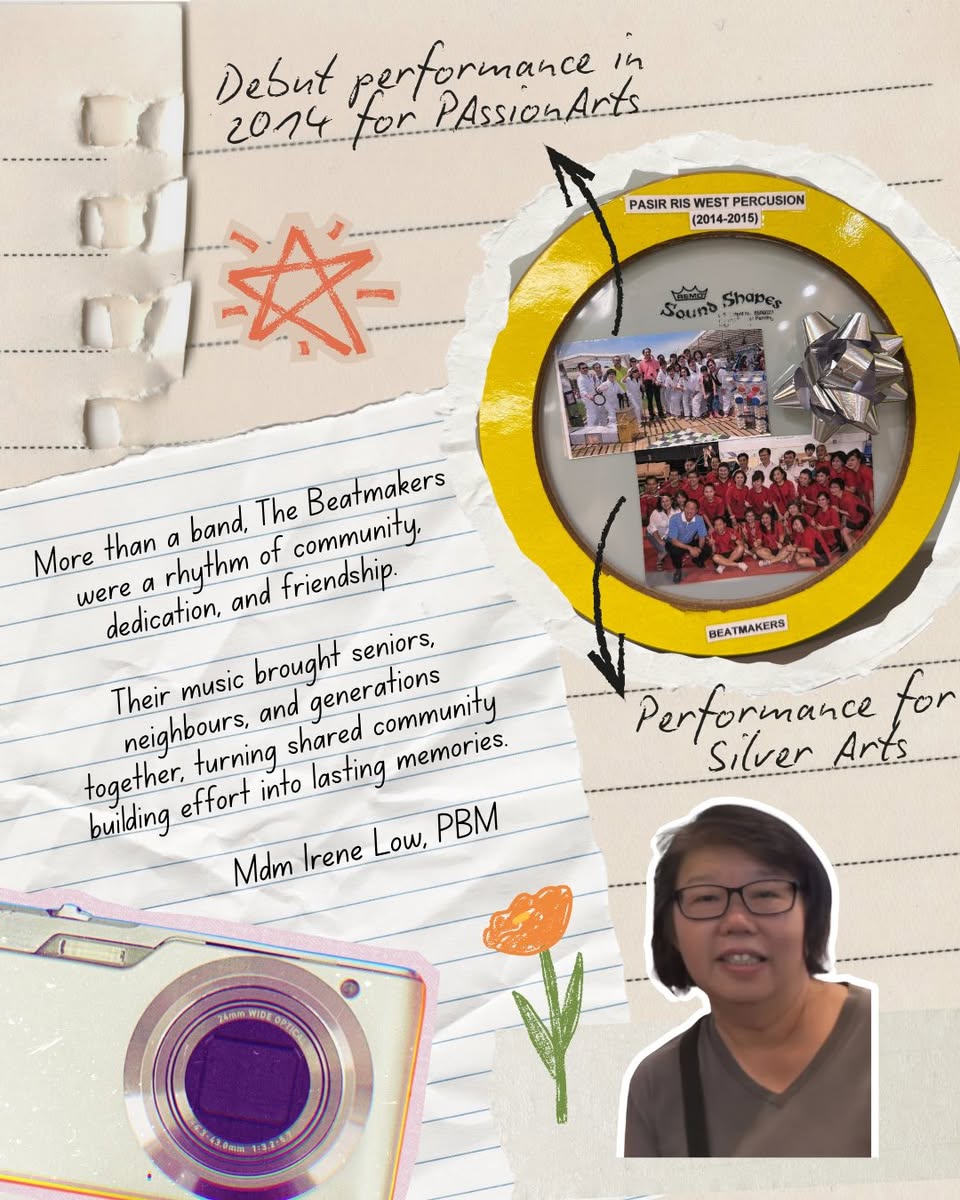 Debut performance in
2014 for PAssionArts
PASIR RIS WEST PERCUSION
(2014-2015)
REMO
Sound Shapes
BEATMAKERS
More than a band, The Beatmakers
were a rhythm of community,
dedication, and friendship.
Their music brought seniors,
neighbours, and generations
together, turning shared community
building effort into lasting memories.
Mdm Irene Low, PBM
Performance for
Silver Arts
24mm WIDE OPTICA